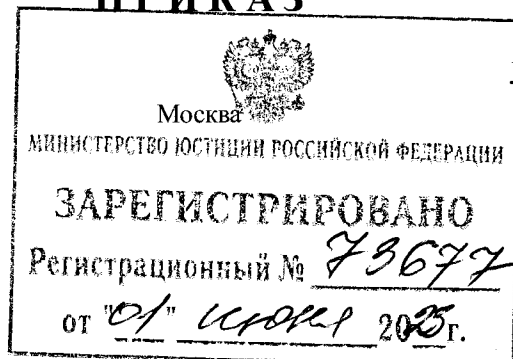 ПРИКАЗ
Москва
МИНИСТЕРСТВО ЮСТИЦИИ РОССИЙСКОЙ ФЕДЕРАЦИИ
ЗАРЕГИСТРИРОВАНО
Регистрационный № 73677
от "01" июня 2023г.